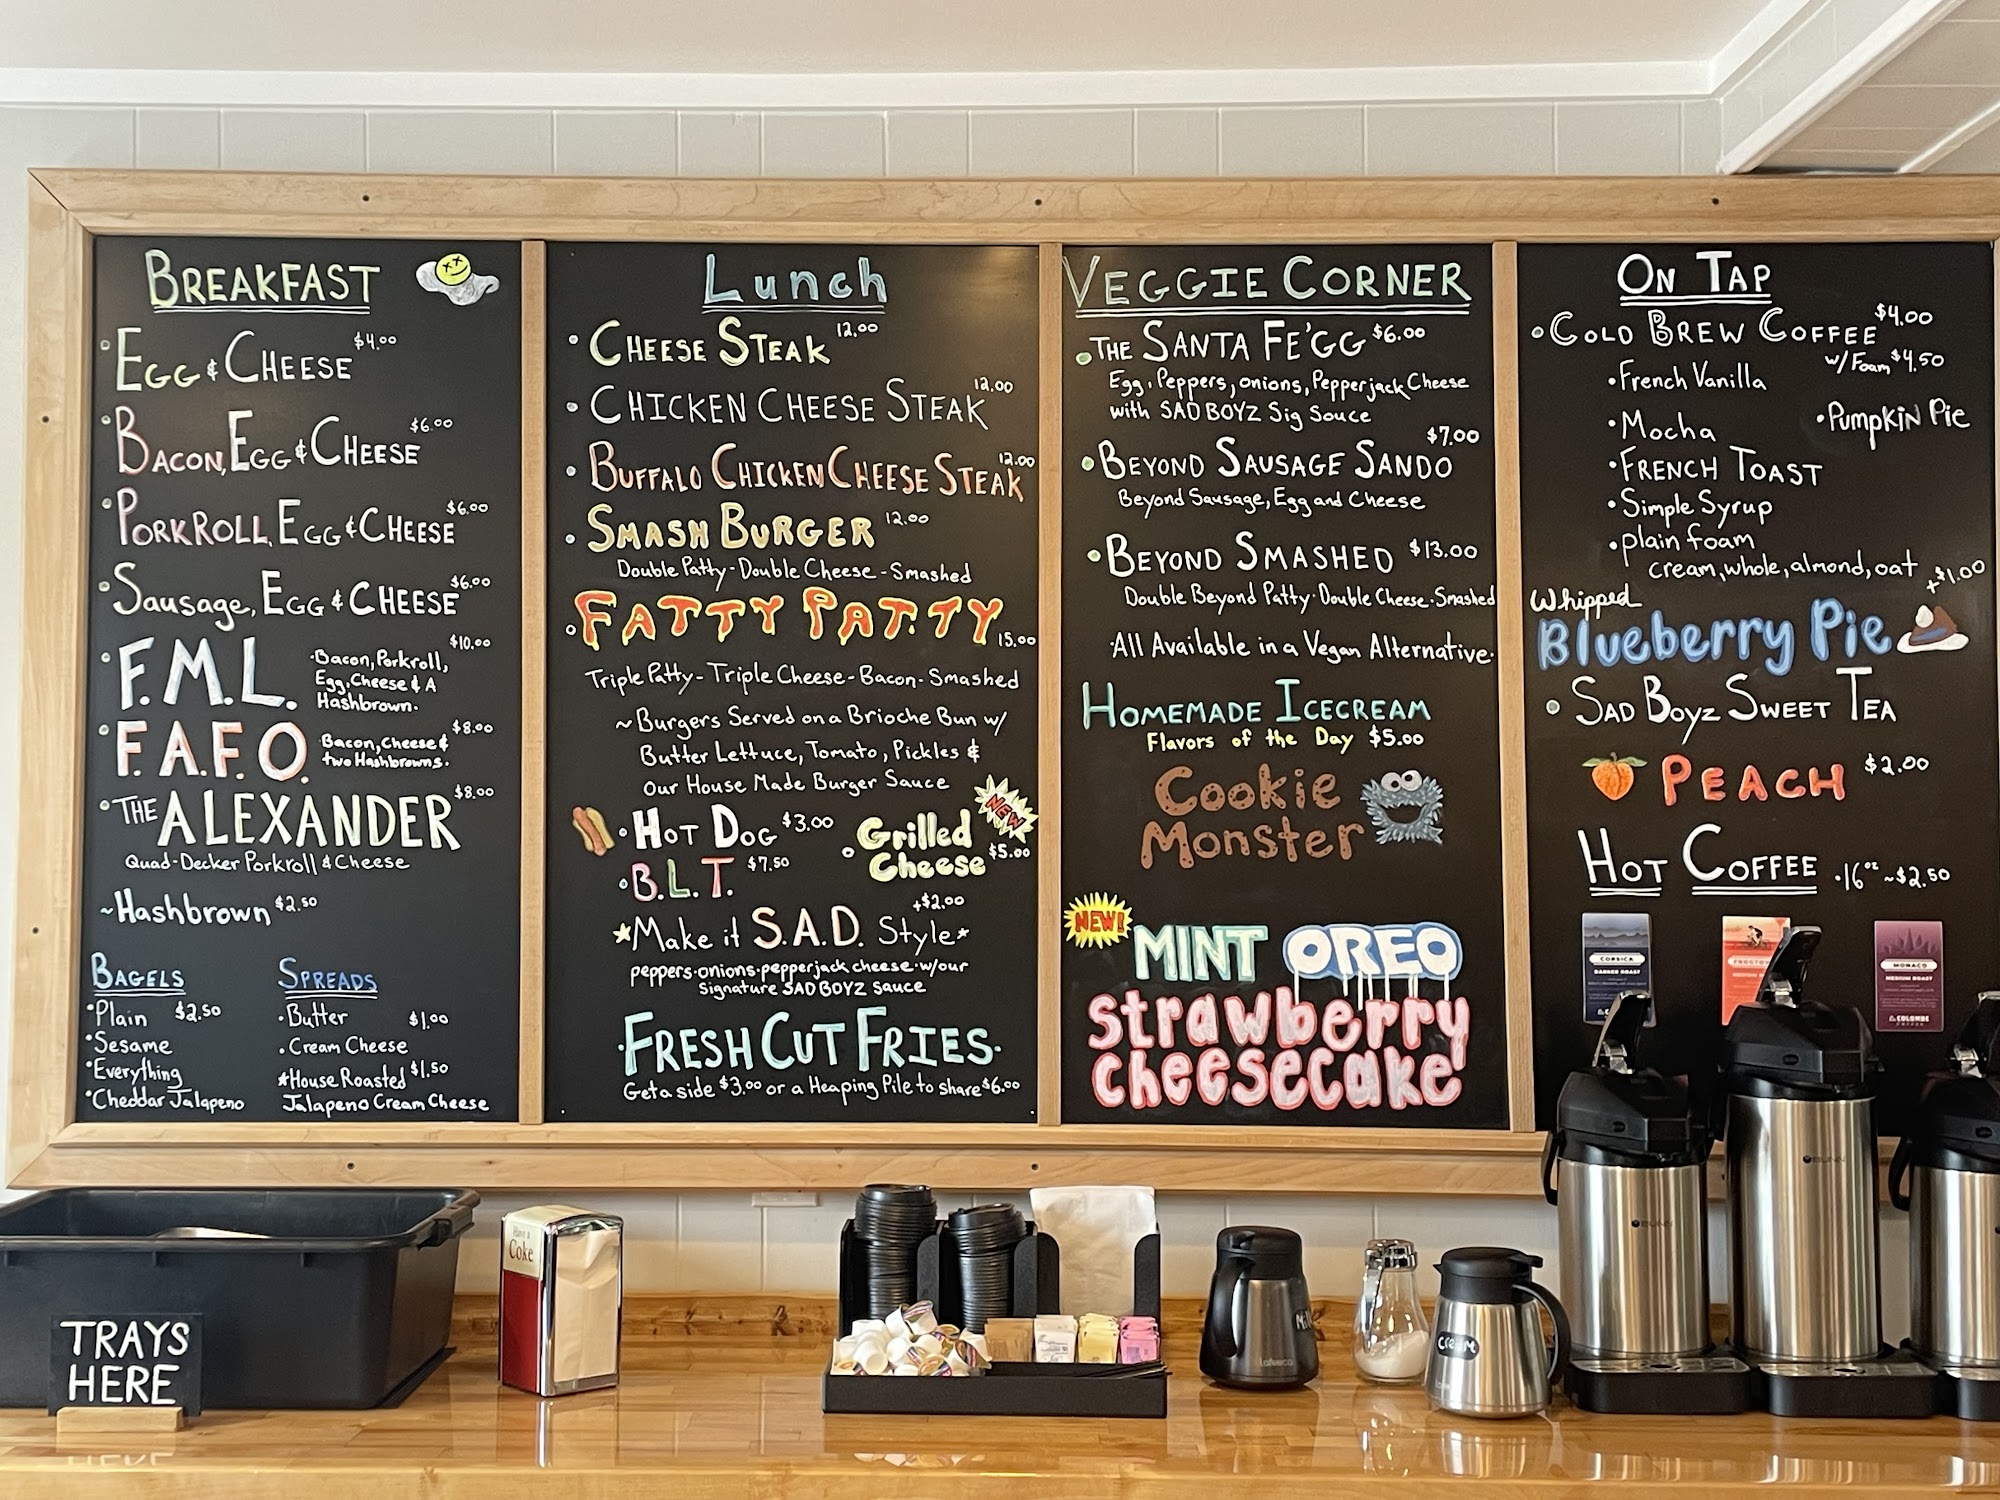 BREAKFAST
• EGG & CHEESE $4.00
• BACON, EGG & CHEESE $6.00
• PORKROLL, EGG & CHEESE $6.00
• Sausage, EGG & CHEESE $6.00
• F.M.L. $10.00
·Bacon, Porkroll,
Egg, Cheese & A
Hashbrown.
• F.A.F.O. $8.00
·Bacon, Cheese &
two Hashbrowns.
• THE ALEXANDER $8.00
Quad-Decker Porkroll & Cheese
~Hashbrown $2.50
BAGELS
•Plain $2.50
•Sesame
•Everything
•Cheddar Jalapeno
SPREADS
•Butter $1.00
•Cream Cheese
*House Roasted $1.50
Jalapeno Cream Cheese
Lunch
• CHEESE STEAK 12.00
• CHICKEN CHEESE STEAK 12.00
• BUFFALO CHICKEN CHEESE STEAK 12.00
• SMASH BURGER 12.00
Double Patty - Double Cheese - Smashed
• FATTY PATTY 15.00
Triple Patty - Triple Cheese - Bacon - Smashed
~Burgers Served on a Brioche Bun w/
Butter Lettuce, Tomato, Pickles &
Our House Made Burger Sauce
• HOT DOG $3.00
• B.L.T. $7.50
NEW
• Grilled
Cheese $5.00
*Make it S.A.D. Style* +$2.00
peppers·onions·pepperjack cheese·w/our
Signature SAD BOYZ sauce
·FRESH CUT FRIES·
Get a side $3.00 or a Heaping Pile to share $6.00
VEGGIE CORNER
• THE SANTA FE'GG $6.00
Egg, Peppers, onions, Pepperjack Cheese
with SAD BOYZ Sig Sauce
• BEYOND SAUSAGE SANDO $7.00
Beyond Sausage, Egg and Cheese
• BEYOND SMASHED $13.00
Double Beyond Patty·Double Cheese·Smashed
·All Available in a Vegan Alternative·
HOMEMADE ICECREAM
Flavors of the Day $5.00
Cookie
Monster
NEW!
MINT OREO
Strawberry
cheesecake
ON TAP
• COLD BREW COFFEE $4.00
w/Foam $4.50
•French Vanilla
•Mocha
•Pumpkin Pie
•FRENCH TOAST
•Simple Syrup
•plain foam
cream, whole, almond, oat +$1.00
Whipped
Blueberry Pie
• SAD BOYZ SWEET TEA
PEACH $2.00
HOT COFFEE ·16oz ~$2.50
CORSICA
DARKER ROAST
MONACO
MEDIUM ROAST
LA COLOMBE
COFFEE
BUNN
BUNN
Have a
Coke
TRAYS
HERE
Cream